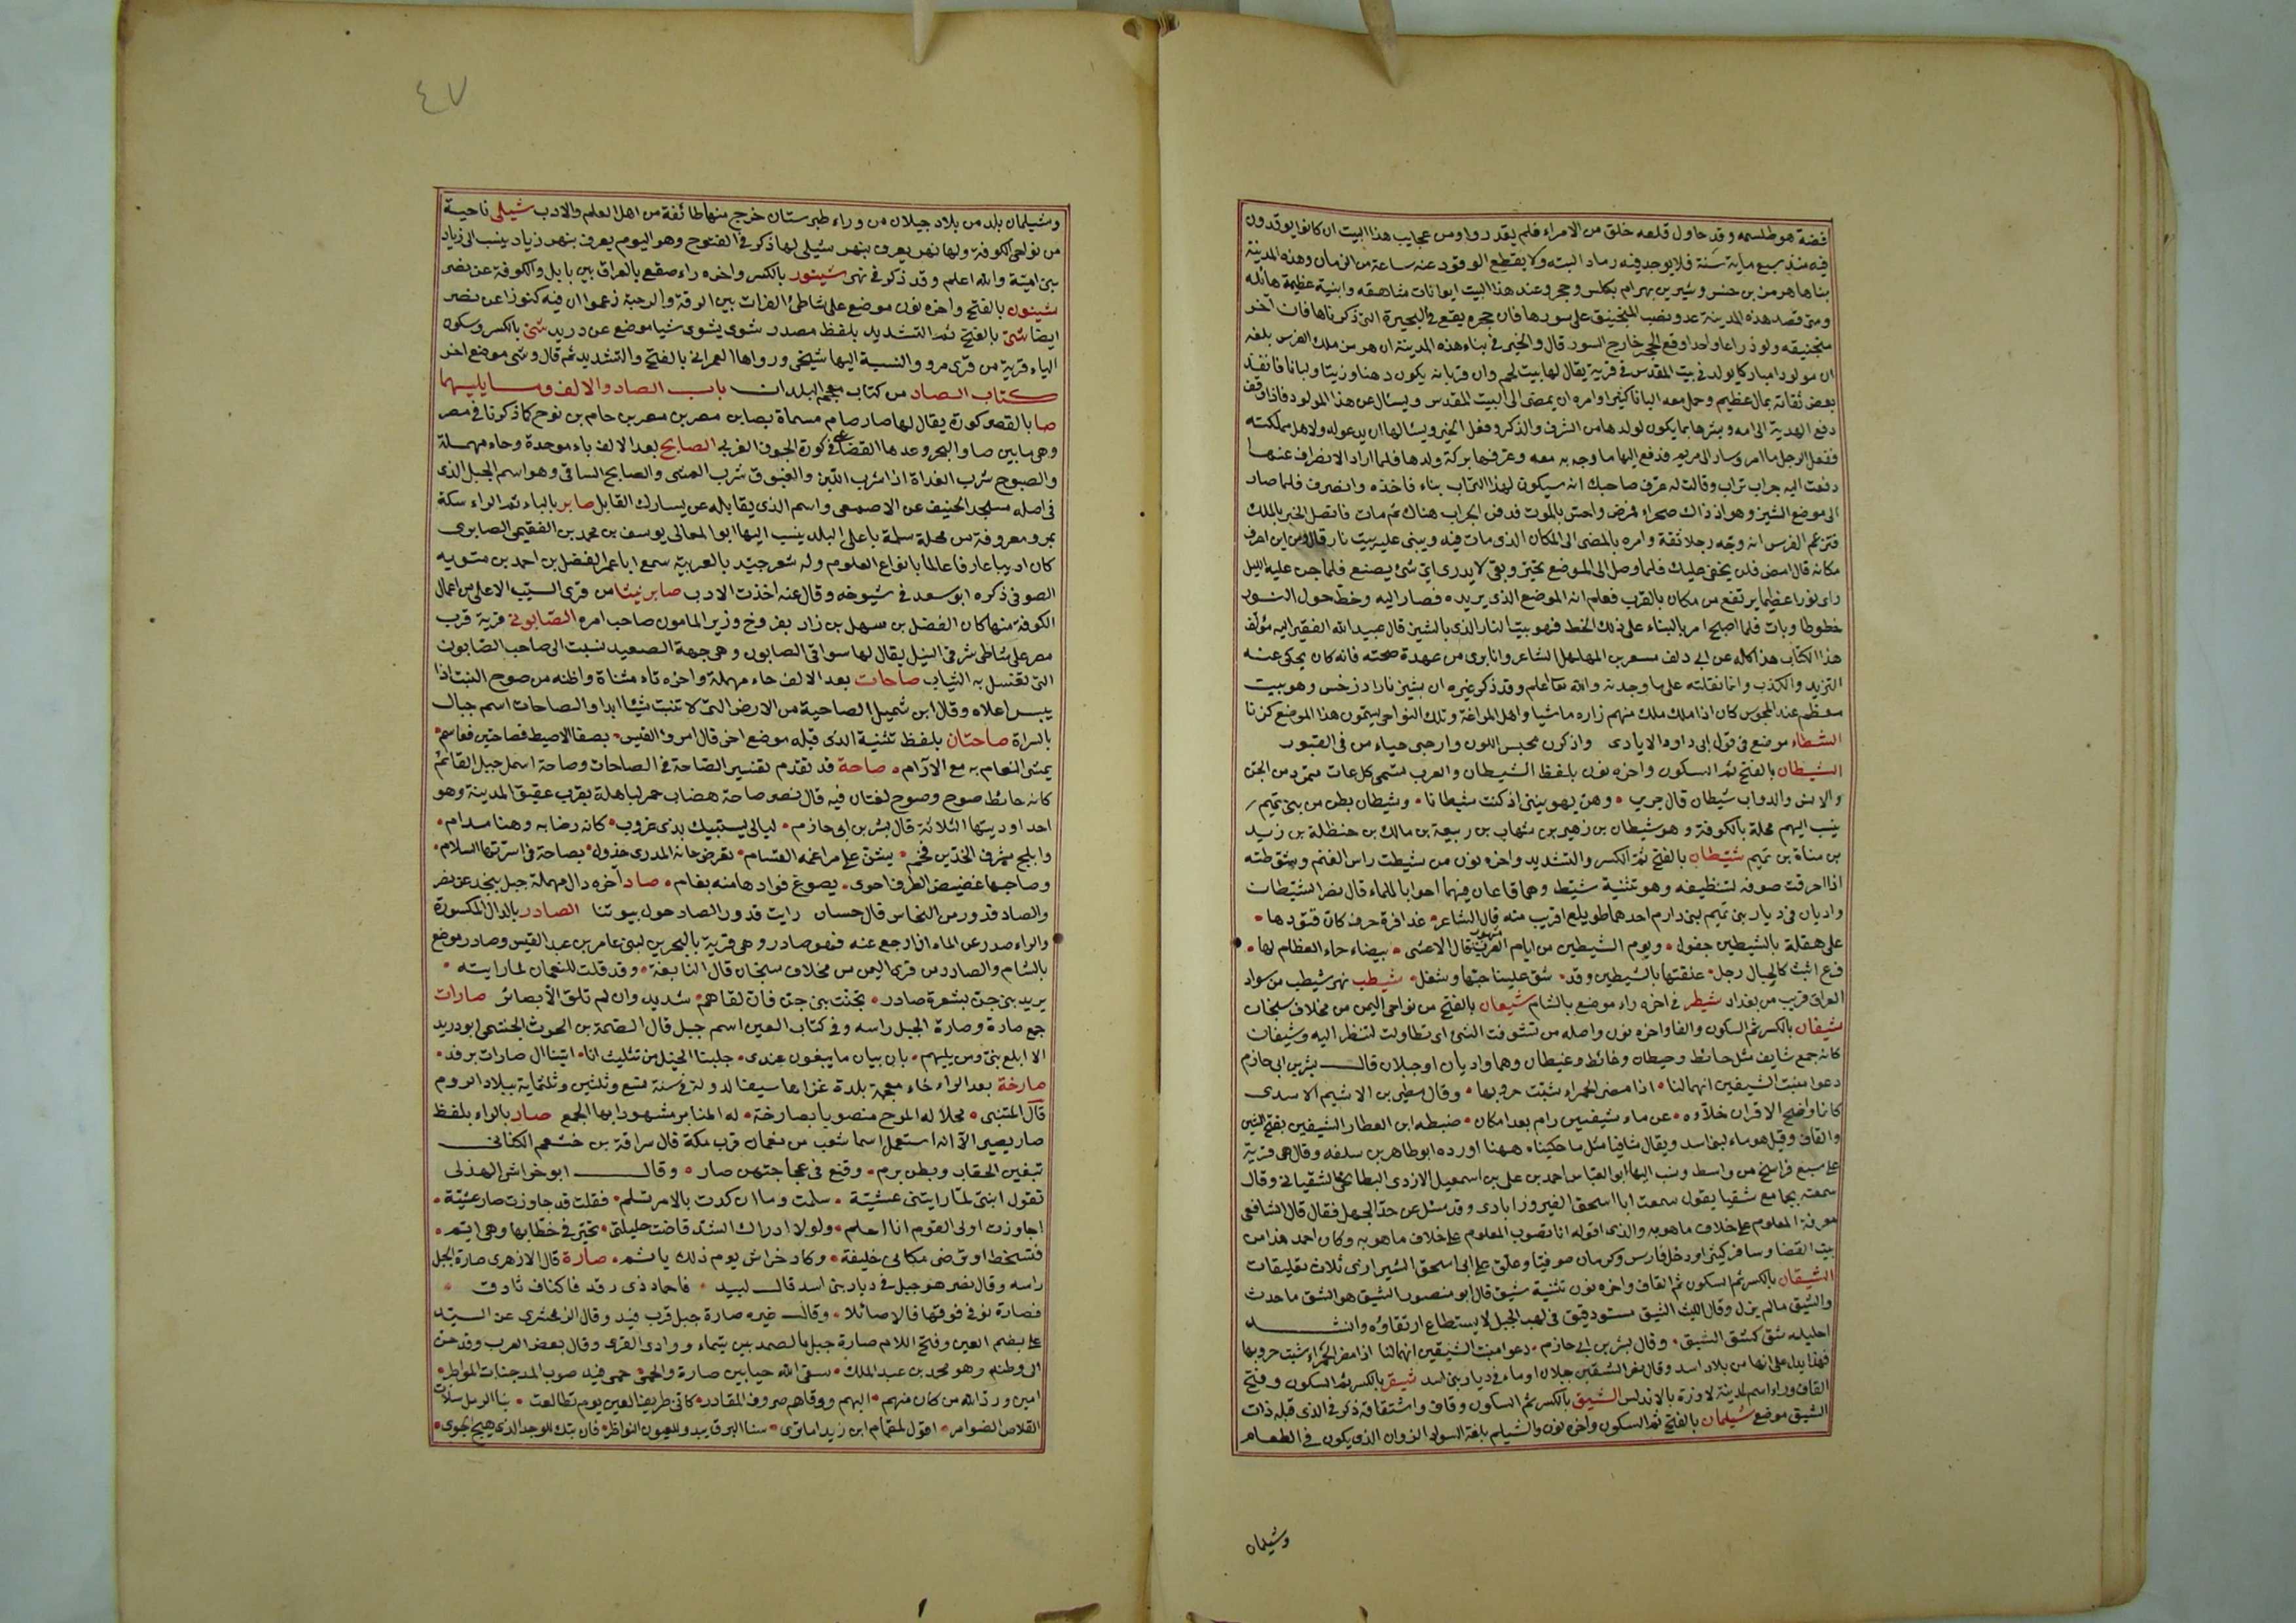 فضة هو طلسمه وقد حاول قلعه خلق من الامراء فلم يقدروا ومن عجايب هذا البيت ان كانوا يوقدون
فيه منذ سبع ماية سنة فلا يوجد فيه رماد البته ولا ينقطع الوقود عنه ساعة من الزمان وهذه المدينة
بناها هرمز بن خسروشير بن بهرام بكلس وحجر وعند هذا البيت ايوانات شاهقه وابنية عظيمة هائله
ومتى قصد هذه المدينة عدو ونصب المنجنيق على سورها فان حجره يقع في البحيرة التى ذكرناها فان اخر
منجنيقه ولو ذراعا واحدا وقع الحجر خارج السور قال والخبر في بناء هذه المدينة ان هرمز ملك الفرس بلغه
ان مولودا مباركا يولد في بيت المقدس في قرية يقال لها بيت لحم وان قربانه يكون دهنا وزيتا ولبانا فانفذ
بعض ثقاته بمال عظيم وحمل معه لبانا كثيرا وامره ان يمضى الى البيت المقدس ويسال عن هذا المولود فاذا وقف
دفع الهدية الى امه وبشرها بما يكون لولدها من الشرف والذكر وفعل الخير ويسالها ان يدعو له ولاهل مملكته
ففعل الرجل ما امر وسار الى مريم فدفع اليها ما وجه به معه وعرفها بركة ولدها فلما اراد الانصراف عنها
دفعت اليه جراب تراب وقالت له عرف صاحبك انه سيكون لهذا التراب بناء فاخذه وانصرف فلما صار
الى موضع الشيز وهو اذ ذاك صحراء فمرض واحس بالموت فدفن الجراب هناك ثم مات فاتصل الخبر بالملك
فتزعم الفرس انه وجه رجلا ثقة وامره بالمضى الى المكان الذى مات فيه ويبنى عليه بيت نار قال ومن اين اعرف
مكانه قال امض فلن يخفى عليك فلما وصل الى الموضع تحير وبقى لا يدرى اي شئ يصنع فلما جن عليه الليل
راى نورا عظيما يرتفع من مكان بالقرب فعلم انه الموضع الذى يريده فصار اليه وخط حول النور
خطوطا وبات فلما اصبح امر بالبناء على ذلك الخط فهو بيت النار الذى بالشيز قال عبيد الله الفقير اليه مؤلف
هذا الكتاب هذا كله عن ابى دلف مسعر بن المهلهل الشاعر وانا برى من عهدة صحته فانه كان يحكى عنه
التزيد والكذب وانما نقلته على ما وجدته والله تعا اعلم وقد ذكر غيره ان بشيز نار اذرخس وهو بيت
معظم عند المجوس كان اذا ملك ملك منهم زاره ماشيا واهل المراغة وتلك النواحى يسمون هذا الموضع كزنا
الشطاء موضع في قول ابى داود الايادى واذكرن محبس اللبون وارجى حياء من في القبور
الشيطان بالفتح ثم السكون واخره نون بلفظ الشيطان والعرب تسمى كل عات متمرد من الجن
والانس والدواب شيطان قال جرير • وهن يهويننى اذ كنت شيطانا • وشيطان بطن من بنى تميم
ينسب اليهم محلة بالكوفة وهو شيطان بن زهير بن شهاب بن ربيعة بن مالك بن حنظلة بن زيد
بن مناة بن تميم شيطان بالفتح ثم الكسر والتشديد واخره نون من شيطت راس الغنم وشوطته
اذا احرقت صوفه لتنظيفه وهو تثنية شيط وهما قاعان فيهما احوايا للماء قال نصر الشيطان
واديان في ديار بنى تميم لبنى دارم احدهما طويلع اقريب منه قال الشاعر • عذافرة حرف كان قتودها •
على هقلة بالشيطين جفول • ويوم الشيطين من ايام العرب مشهور قال الاعشى • بيضاء حاء العظام لها •
فرع اثيث كالحبال رجل • علقتها بالشيطين وقد • شق علينا حبها وشغل • شيطب نهر شيطب من سواد
العراق قريب من بغداد شيطر في اخره راء موضع بالشام شيعان بالفتح من نواحى اليمن من مخلاف سنحان
شيفان بالكسر ثم السكون والفا واخره نون واصله من تشوفت الشئ اى تطاولت لتنظر اليه وشيفان
كانه جمع شايف مثل حائط وحيطان وغائط وغيطان وهما واديان او جبلان قال بشر بن ابى حازم
دعوا منبت الشيفين انهما لنا • اذا مضر الحمراء شبت حروبها • وقال مطير بن الاشيم الاسدى
كانما واضح الاقران خلاوه • عن ماء شيفين رام بعد امكان • ضبطه ابن العطار الشيفين بفتح الشين
والقاف وقيل هو ماء لبنى اسد ويقال شافيا مثل ما حكيناه ههنا اورده ابو طاهر بن سلفه وقال هى قرية
على سبع فراسخ من واسط ونسب اليها ابو العباس احمد بن على بن اسمعيل الازدى البطائحى الشقيانى وقال
سمعته بجامع شقيا يقول سمعت ابا اسحق الفيروزابادى وقد سئل عن حد الجهل فقال قال الشافعى
معرفة المعلوم على خلاف ماهو به والذى اقوله انا تصور المعلوم على خلاف ما هو به وكان احمد هذا من
بيت القضا وسافر كثيرا ودخل فارس وكرمان صوفيا وعلق على ابى اسحق الشيرازى ثلاث تعليقات
الشيقان بالكسر ثم السكون ثم القاف واخره نون تثنية شيق قال ابو منصور الشيق هو الشق ما حدث
والشيق مالم يزل وقال الليث الشيق مستو دقيق في لهب الجبل لا يستطاع ارتقاؤه وانشد
احليله شق كشق الشيق • وقال بشر بن ابى حازم • دعوا منبت الشيقين انهما لنا اذا مضر الحمراء شبت حروبها
فهذا يدل على انها من بلاد اسد وقال نصر الشيقين جبلان او ماء في ديار بنى اسد شيقر بالكسر ثم السكون وفتح
القاف وراء اسم لمدينة لاردة بالاندلس الشيق بالكسر ثم السكون وقاف واشتقاقه ذكر في الذى قبله ذات
الشيق موضع شيلمان بالفتح ثم السكون واخره نون والشيلم بلغة السواد الزوان الذى يكون في الطعام
وشيلمان
٤٧
وشيلمان بلد من بلاد جيلان من وراء طبرستان خرج منها طائفة من اهل العلم والادب شيلى ناحية
من نواحى الكوفة ولها نهر يعرف بنهر شيلى لها ذكر في الفتوح وهو اليوم يعرف بنهر زياد ينسب الى زياد
بن امية والله اعلم وقد ذكر في نهر شينور بالكسر واخره راء صقع بالعراق بين بابل والكوفة عن نصر
شينون بالفتح واخره نون موضع على شاطئ الفرات بين الرقة والرحبة زعموا ان فيه كنوزا عن نصر
ايضا شى بالفتح ثم التشديد بلفظ مصدر شوى يشوى شيا موضع عن دريد شى بالكسر وسكون
الياء قرية من قرى مرو والنسبة اليها شيخى ورواها العمرانى بالفتح والتشديد ثم قال وشى موضع اخر
كتاب الصاد من كتاب معجم البلدان باب الصاد والالف وما يليهما
صا بالقصر كورة يقال لها صا وصا مسماة بصا بن مصر بن مصر بن حام بن نوح كما ذكرنا في مصر
وهى ما بين صا والبحر وعدها القضاعى في كورة الجوف الغربى الصابح بعد الالف باء موحدة وحاء مهملة
والصبوح شرب الغداة اذا شرب اللبن والغبوق شرب العشى والصابح الساقى وهو اسم الجبل الذى
في اصله مسجد الخيف عن الاصمعى واسم الذى يقابله عن يسارك القابل صابر بالباء ثم الراء سكة
بمرو معروفة من محلة سلمة باعلى البلد ينسب اليها ابو المعالى يوسف بن محمد بن الفقيمى الصابرى
كان اديبا عارفا عالما بانواع العلوم وله شعر جيد بالعربية سمع ابا عمر الفضل بن احمد بن متويه
الصوفى ذكره ابو سعد في شيوخه وقال عنه اخذت الادب صابرنيثا من قرى السيب الاعلى من اعمال
الكوفة منها كان الفضل بن سهل بن زاد بفروخ وزير المامون صاحب امره الصابونى قرية قرب
مصر على شاطى شرقى النيل يقال لها سواقى الصابون وهى جهة الصعيد نسبت الى صاحب الصابون
التى تغتسل به الثياب صاحات بعد الالف حاء مهملة واخره تاء مثناة واظنه من صوح النبت اذا
يبس اعلاه وقال ابن شميل الصاحية من الارض التى لا تنبت شيئا ابدا والصاحات اسم جبال
بالسراة صاحتان بلفظ تثنية الذى قبله موضع اخر قال امرو القيس • بصفا الاطيط فصاحتين فعاسم •
يمشى النعام به مع الآرام • صاحة قد تقدم تفسير الصاحة في الصاحات وصاحة اسم جبل القائم
كانه حائط صوح وصوح لغتان فيه قال نصر صاحة هضاب حمر لباهلة بقرب عقيق المدينة وهو
احد اوديتها الثلاثة قال بشر بن ابى حازم • ليالى يستبيك بذى غروب • كانه رضابه وهنا مدام •
وابلج مشرف الخدين فخم • يسن على مراغمه القسام • تعرض جابة المدرى خذول • بصاحة في اسرتها السلام •
وصاحبها غضيض الطرف احوى • يصوغ فوادها منه بغام • صاد آخره دال مهملة جبل بنجد عن نصر
والصاد قدور من النحاس قال حسان رايت قدور الصاد حول بيوتنا الصادر بالدال المكسورة
والراء صدر عن الماء اذا رجع عنه فهو صادر وهى قرية بالبحرين لبنى عامر بن عبد القيس وصادر موضع
بالشام والصادر من قرى اليمن من مخلاف سنحان قال النابغة • وقد قلت للنعمان لما رايته •
يريد بنى حن بثغرة صادر • تجنب بنى حن فان لقاءهم • شديد وان لم تلق الا بصابر صارات
جمع صارة وصارة الجبل راسه وفى كتاب العين اسم جبل قال الصمة بن الحرث الجشمى ابو دريد
الا ابلغ بنى ومن يليهم • بان بيان ما يبغون عندى • جلبنا الخيل من تثليث انا • اتينا ال صارات برفد •
صارخة بعد الراء خاء معجمة بلدة غزاها سيف الدولة في سنة تسع وثلثين وثلثماية ببلاد الروم
قال المتنبى • مخلا له المرج منصوبا بصارخة • له المنابر مشهودا بها الجمع صار بالراء بلفظ
صار يصير الا انه استعمل اسما شعب من نعمان قرب مكة قال سراقة بن خثعم الكنانى
تبغين الحقاب وبطن برم • وقنع في عجاجتهن صار • وقال ابو خراش الهذلى
تقول ابنتى لما راتنى عشية • سلمت وما ان كدت بالامر تسلم • فقلت قد جاوزت صار عشية •
اجاوزت اولى القوم انا احلم • ولولا ادراك الشد قاضت حليلتى • تخير في خطابها وهى ايتم •
فتسخط او ترضى مكانى خليفة • وكاد خراش يوم ذلك ياتم • صارة قال الازهرى صارة الجبل
راسه وقال نصر هو جبل في ديار بنى اسد قال لبيد • فاجماد ذى رقد فاكناف ثادق •
فصارة نوفى فوقها فالاصائلا • وقال غيره صارة جبل قرب فيد وقال الزمخشرى عن السيد
على بضم العين وفتح اللام صارة جبل بالصمد بين تيماء ووادى القرى وقال بعض العرب وقد حن
الى وطنه وهو محمد بن عبد الملك • سقى الله حيا بين صارة والحمى • حمى فيد صوب المدجنات المواطر •
امين ورد الله من كان منهم • اليهم ووقاهم صروف المقادر • كانى طريف العين يوم تطالعت • بنا الرمل سلات
القلاص الضوامر • اقول لقمام ابن زيد اما ترى • سنا البرق يبدو للعيون النواظر • فان تبك للوجد الذى هيج الجوى •